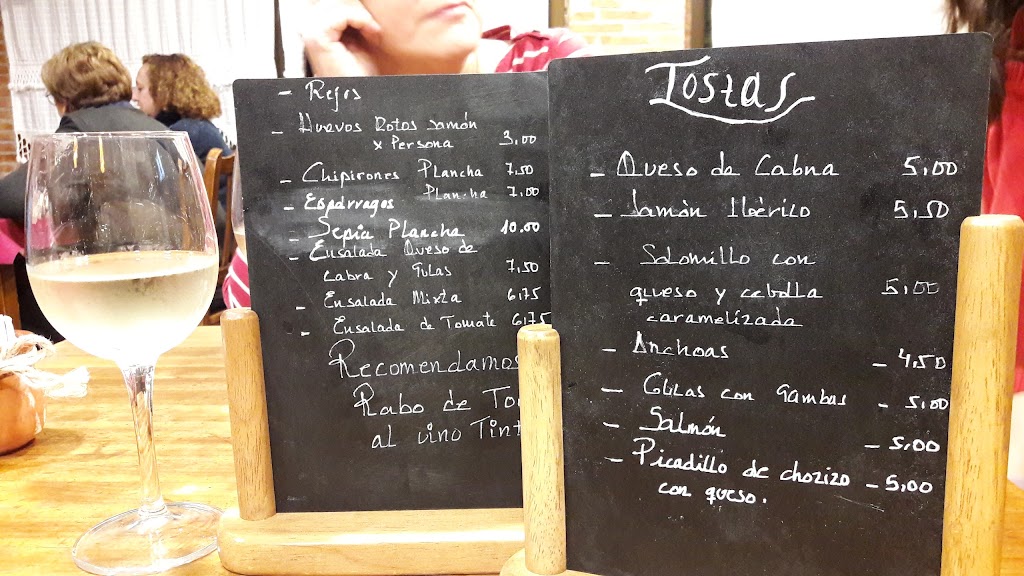 - Rejos
- Huevos Rotos Jamón
x Persona 3,00
- Chipirones Plancha 7,50
- Espárragos Plancha 7,00
- Sepia Plancha 10,00
- Ensalada Queso de
Cabra y Gulas 7,50
- Ensalada Mixta 6,75
- Ensalada de Tomate 6,75
Recomendamos
Rabo de To
al vino Tint
Tostas
- Queso de Cabra 5,00
- Jamón Ibérico 5,50
- Solomillo con
queso y cebolla 5,00
caramelizada
- Anchoas - 4,50
- Gulas con Gambas - 5,00
- Salmón - 5,00
- Picadillo de chorizo - 5,00
con queso.